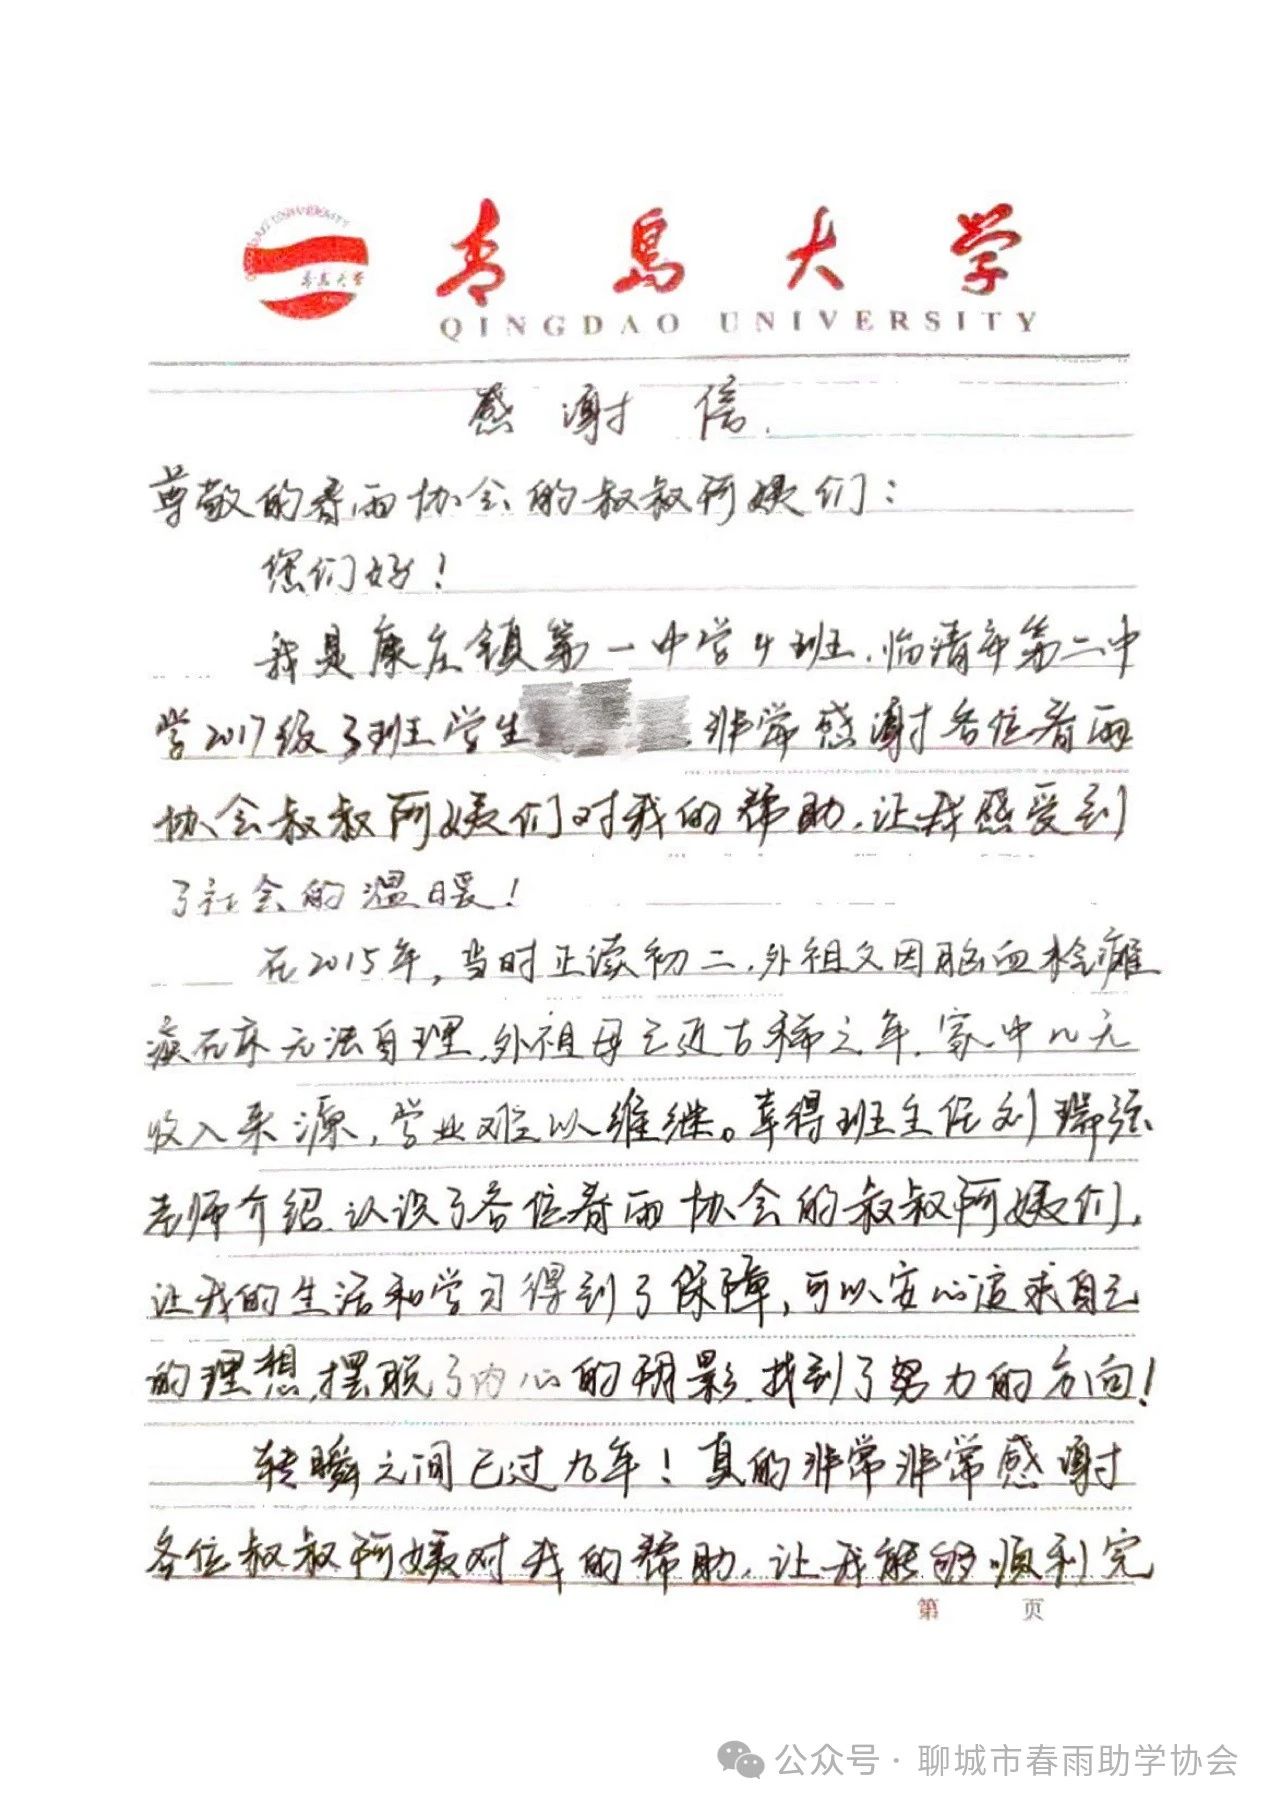 青岛大学
QINGDAO UNIVERSITY
感谢信.
尊敬的春雨协会的叔叔阿姨们：
您们好！
我是康庄镇第一中学4班，临清市第二中
学2017级3班学生 非常感谢各位春雨
协会叔叔阿姨们对我的帮助，让我感受到
了社会的温暖！
在2015年，当时正读初二，外祖父因脑血栓瘫
痪在床无法自理，外祖母已近古稀之年，家中几无
收入来源，学业难以维继。幸得班主任刘瑞强
老师介绍，认识了各位春雨协会的叔叔阿姨们，
让我的生活和学习得到了保障，可以安心追求自己
的理想，摆脱了内心的阴影，找到了努力的方向！
转瞬之间已过九年！真的非常非常感谢
各位叔叔阿姨对我的帮助，让我能够顺利完
第 页
公众号·聊城市春雨助学协会